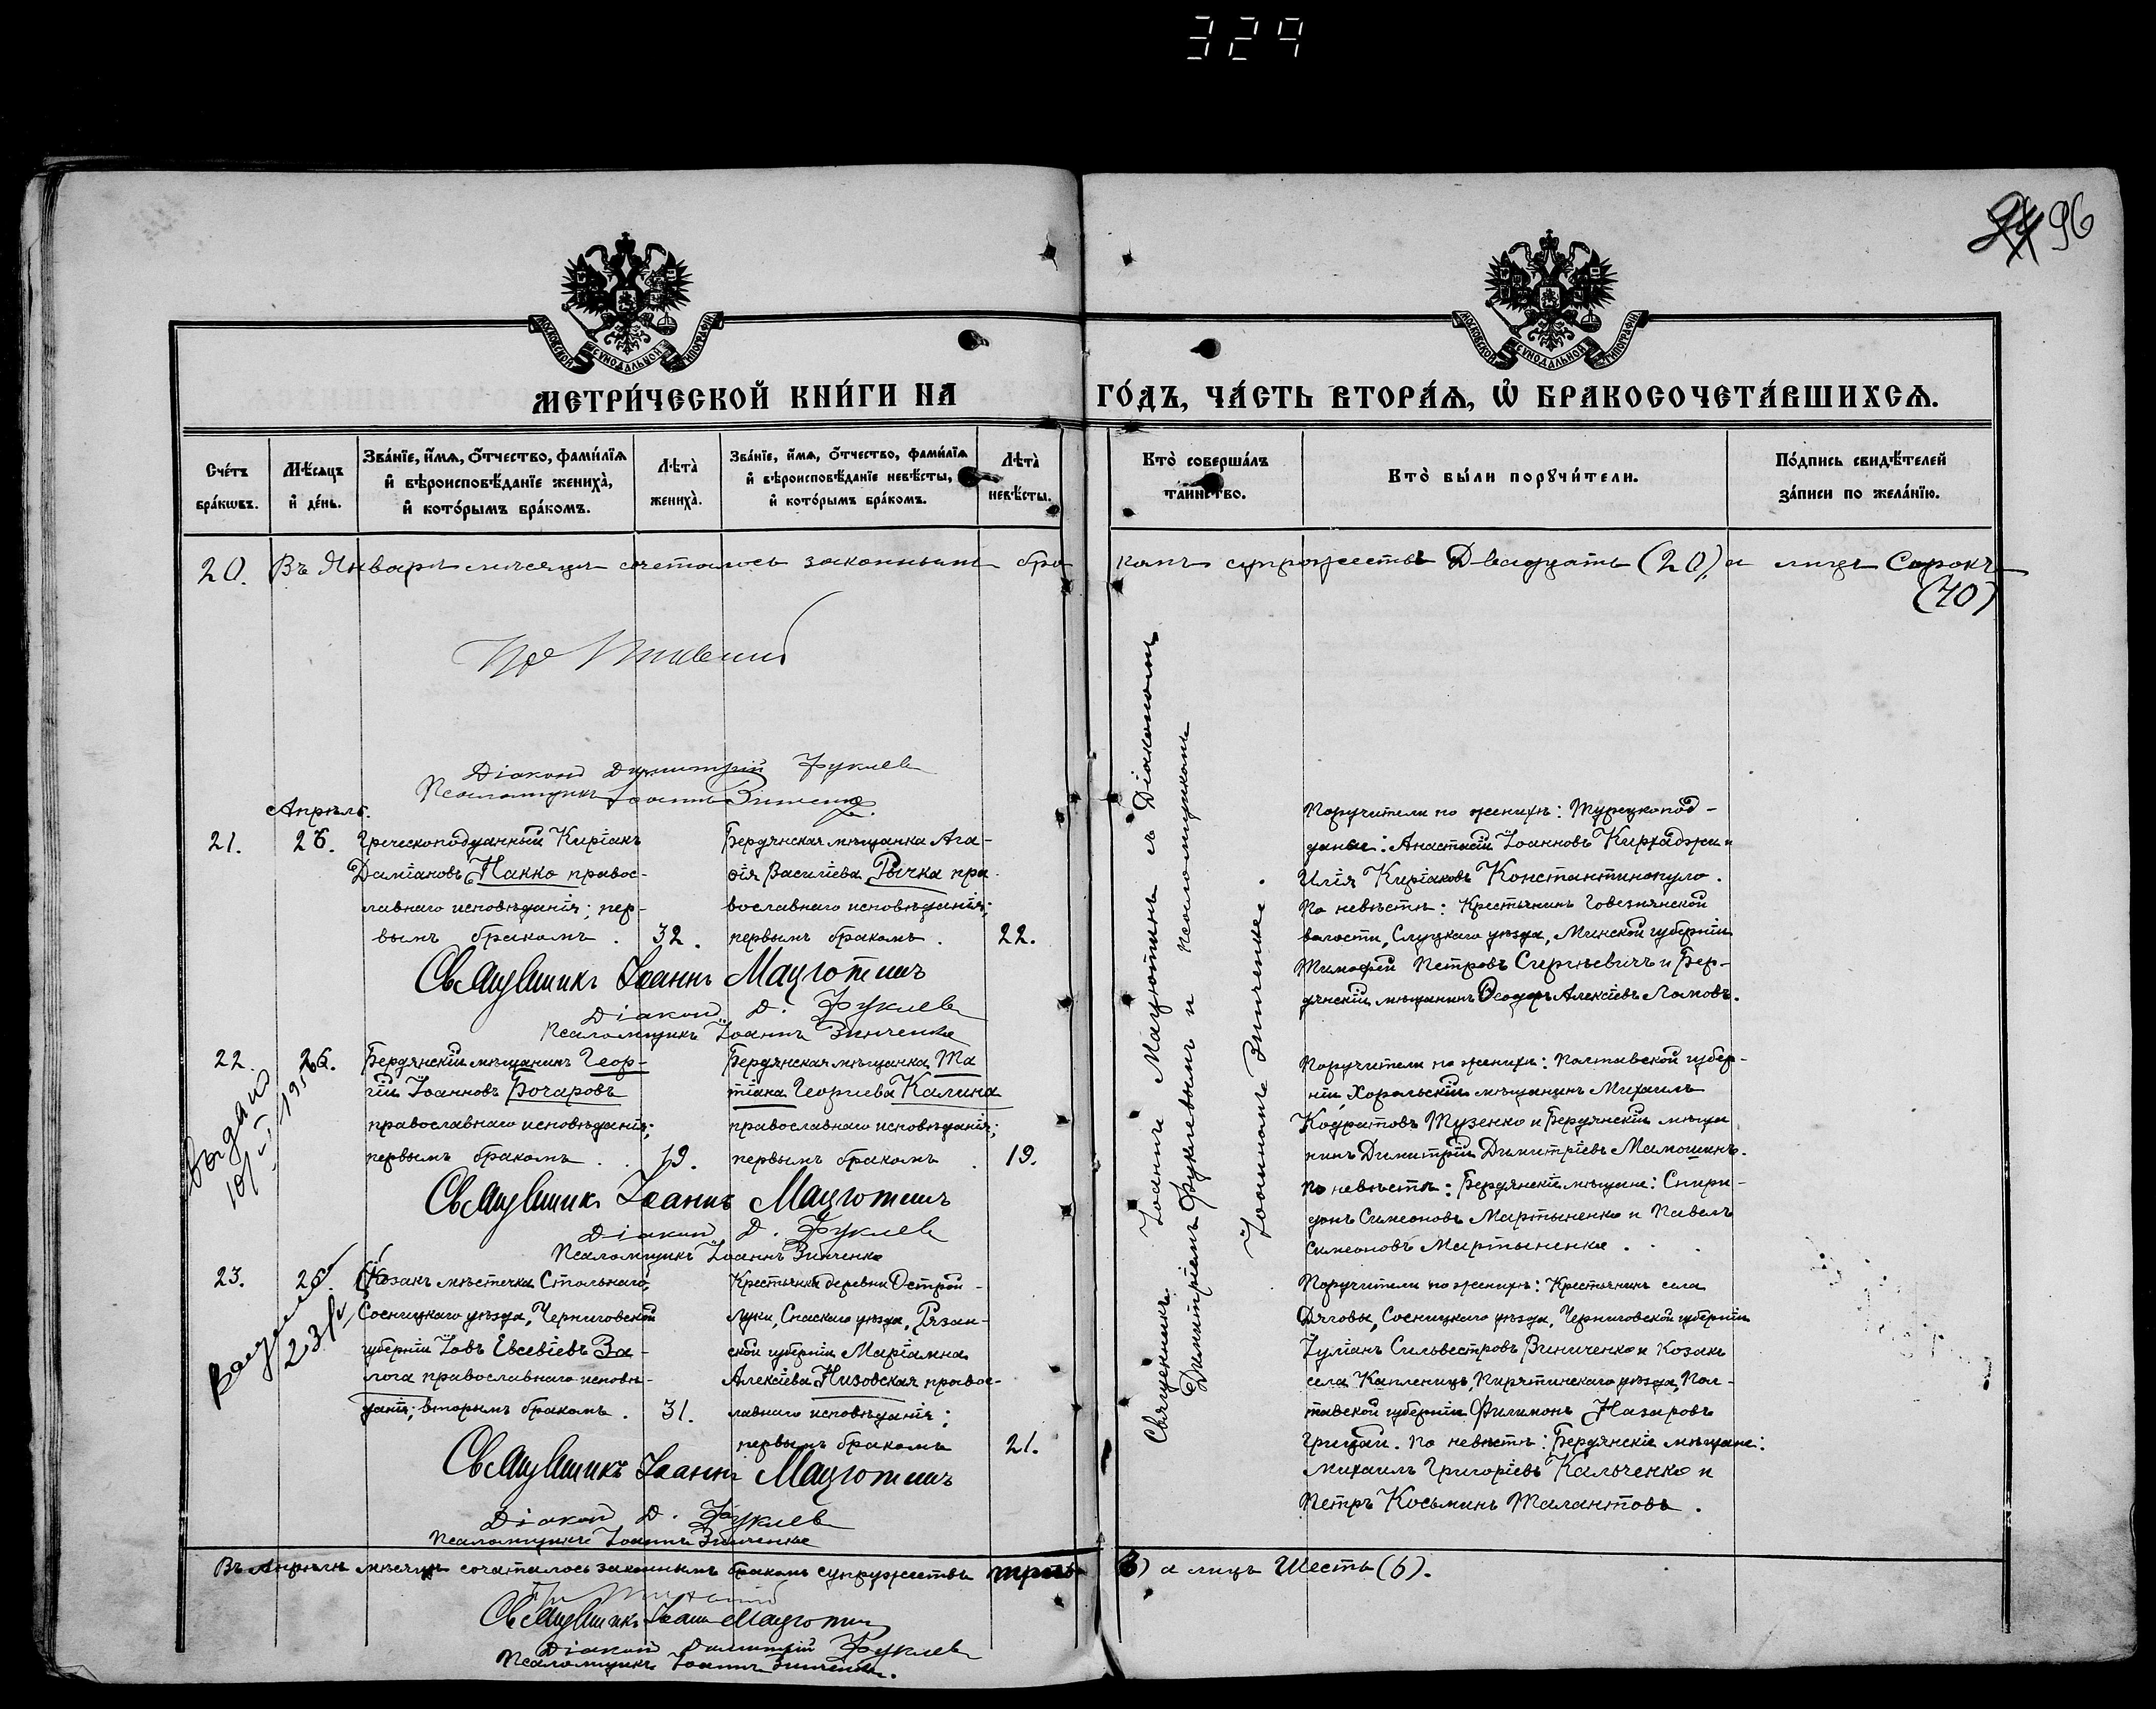 329
96
МОСКОВСКОЙ СѴНОДАЛЬНОЙ ТИПОГРАФІИ
МОСКОВСКОЙ СѴНОДАЛЬНОЙ ТИПОГРАФІИ
МЕТРИ́ЧЕСКОЙ КНИ́ГИ НА ГО́ДЪ, ЧА́СТЬ ВТОРА́Ѧ, Ѡ҆ БРАКОСОЧЕТА́ВШИХСѦ.
Сче́тъ бра́кѡвъ.
Мѣ́сѧцъ и҆ де́нь.
Зва́нїе, и҆́мѧ, ѻ҆́тчество, фами́лїѧ и҆ вѣроисповѣ́данїе жениха̀, и҆ кото́рымъ бра́комъ.
Лѣта̀ жениха̀.
Зва́нїе, и҆́мѧ, ѻ҆́тчество, фами́лїѧ и҆ вѣроисповѣ́данїе невѣ́сты, и҆ кото́рымъ бра́комъ.
Лѣта̀ невѣ́сты.
Кто̀ соверша́лъ та́инство.
Кто̀ бы́ли порꙋчи́тели.
По́дпись свидѣ́телей за́писи по жела́нїю.
20. Въ Январѣ мѣсяцѣ сочеталось законнымъ бракомъ супружествъ Двадцать (20), а лицъ Сорокъ
(40)
Діаконъ Димитрій Фуклевъ
Псаломщикъ Іоаннъ Зинченко.
Апрѣль.
21.
26.
Греческоподданный Киріакъ
Даміановъ Накко правос-
лавнаго исповѣданія; пер-
вымъ бракомъ.
32.
Бердянская мѣщанка Ага-
ѳія Василіева Рычка пра-
вославнаго исповѣданія;
первымъ бракомъ.
22.
Поручители по женихѣ: Турецкопод-
даные: Анастасій Іоанновъ Кирхаджи и
Илія Киріаковъ Константинопуло.
По невѣстѣ: Крестьянинъ Говезнянской
волости, Слуцкаго уѣзда, Минской губерніи
Тимофей Петровъ Сергѣевичъ и Бер-
дянскій мѣщанинъ Ѳеодоръ Алексіевъ Ламовъ.
Священникъ Іоаннъ Мацютинъ
Діаконъ Д. Фуклевъ
Псаломщикъ Іоаннъ Зинченко
22.
26.
Бердянскій мѣщанинъ Геор-
гій Іоанновъ Бочаровъ
православнаго исповѣданія;
первымъ бракомъ.
19.
Бердянская мѣщанка Та
тіана Георгіева Калина
православнаго исповѣданія;
первымъ бракомъ.
19.
Поручители по женихѣ: Полтавской губер-
ніи, Хорольскій мѣщанинъ Михаилъ
Кодратовъ Тузенко и Бердянскій мѣща
нинъ Димитрій Димитріевъ Мамошинъ.
По невѣстѣ: Бердянскіе мѣщане: Спири-
донъ Симеоновъ Мартыненко и Павелъ
Симеоновъ Мартыненко.
Священникъ Іоаннъ Мацютинъ
Діаконъ Д. Фуклевъ
Псаломщикъ Іоаннъ Зинченко
23.
26.
Козакъ мѣстечка Стольнаго,
Сосницкаго уѣзда, Черниговской
губерніи Іовъ Евсевіевъ За-
лога православнаго исповѣ-
данія; вторымъ бракомъ.
31.
Крестьянка деревни Острой-
Луки, Спаскаго уѣзда, Рязан-
ской губерніи Маріамна
Алексіева Низовская правос-
лавнаго исповѣданія;
первымъ бракомъ
21.
Поручители по женихѣ: Крестьянинъ села
Дяговы, Сосницкаго уѣзда, Черниговской губерніи
Іуліанъ Сильвестровъ Виниченко и Козакъ
села Каплениць, Пирятинскаго уѣзда, Пол-
тавской губерніи Филимонъ Назаровъ
Грицай. По невѣстѣ: Бердянскіе мѣщане:
Михаилъ Григоріевъ Кальченко и
Петръ Косьминъ Талантовъ.
Священникъ Іоаннъ Мацютинъ
Діаконъ Д. Фуклевъ
Псаломщикъ Іоаннъ Зинченко
Священникъ Іоаннъ Мацютинъ съ Діакономъ
Димитріемъ Фуклевымъ и псаломщикомъ
Іоанномъ Зинченко.
Въ Апрѣлѣ мѣсяцѣ сочеталось законнымъ бракомъ супружествъ три (3) а лицъ Шесть (6).
Священникъ Іоаннъ Мацютинъ
Діаконъ Димитрій Фуклевъ
Псаломщикъ Іоаннъ Зинченко.